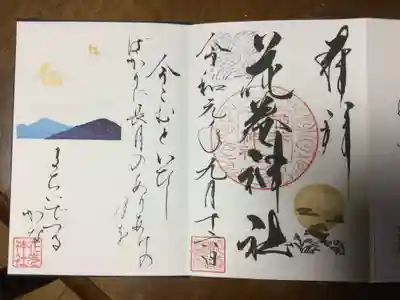 奉拝
花巻神社
令和元年九月十六日
今こむといひし
ばかりに長月のありあけの
月を
まちいでつる
かな